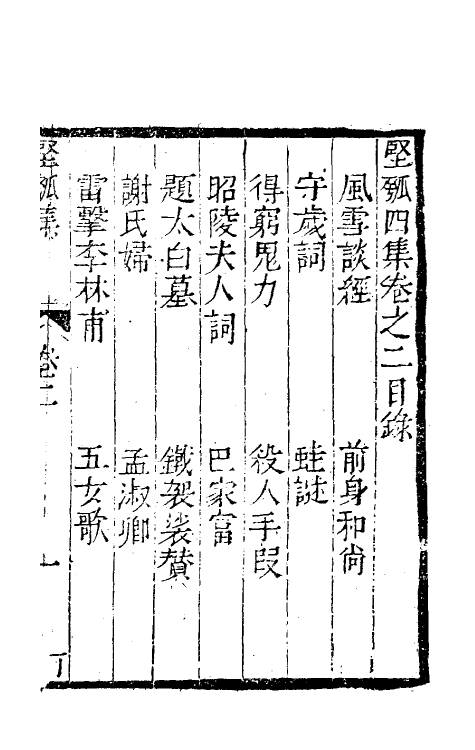 堅瓠四集卷之二目錄
風雪談經　前身和尙
守歲詞　蛙謎
得窮鬼力　役人手段
昭陵夫人詞　巴家富
題太白墓　鐵袈裟贊
謝氏婦　孟淑卿
雷擊李林甫　五女歌
堅瓠集　卷二　一